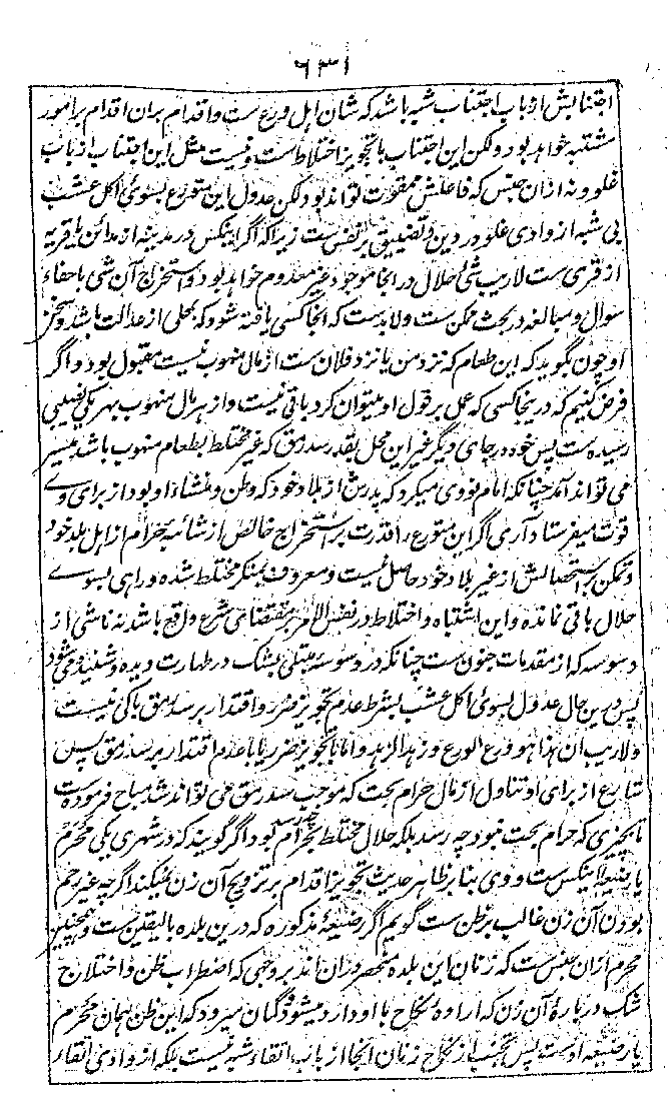 ۶۳۱
اجتنابش از باب اجتناب شبه باشد که شان اہل ورع ست و اقدام بران اقدام بر امور
مشتبه خواہد بود و لکن این اجتناب با تجویز اختلاط ست و نیست مثل این اجتناب از باب
غلو و نه ازان جنس که فاعلش ممقوت تواند بود لکن عدول این متورع بسوی اکل عشب
بی شبه از وادی غلو در دین و تضییق بر نفس ست زیرا که اگر اینکس در مدینه از مدائن یا قریه
از قری ست لاریب شی حلال در انجا موجود غیر معدوم خواہد بود و استخراج آن شی باحفاء
سوال و مبالغه در بحث ممکن ست و لابد ست که انجا کسی یافته شود که بمحلی از عدالت باشد و سخن
او چون بگوید که این طعام که نزد من یا نزد فلان ست از مال منهوب نیست مقبول بود و اگر
فرض کنیم که درینجا کسی که عمل بر قول او میتوان کرد باقی نیست و از ہر مال منهوب بہر یکی نصیبی
رسیده ست پس خود در جای دیگر غیر این محل بقدر سد رمق که غیر مختلط بطعام منهوب باشد میسر
می تواند آمد چنانکه امام نووی میکرد که پدرش از بلاد خود که وطن و منشاء او بود از برای وے
قوت میفرستاد آری اگر این متورع را قدرت بر استخراج خالص از شائبه حرام از اہل بلد خود
و تمکن بر استحصالش از غیر بلاد خود حاصل نیست و معروف بمنکر مختلط شده و راہی بسوے
حلال باقی نمانده و این اشتباه و اختلاط در نفس الامر بمقتضای شرع واقع باشد نه ناشی از
وسوسه که از مقدمات جنون ست چنانکه در وسوسۂ مبتلی بشک در طهارت دیده و شنیده می شود
پس درین حال عدول بسوی اکل عشب بشرط عدم تجویز ضرر و اقتدار بر سد رمق باکی نیست
و لاریب ان هذا هو ورع الورع و زهد الزهد و اما با تجویز ضرر یا با عدم اقتدار بر سد رمق پس
شارع از برای او تناول از مال حرام بحت که موجب سد رمق می تواند شد مباح فرموده ست
تا بچیزی که حرام بحت نبود چه رسد بلکه حلال مختلط بحرام بود و اگر گویند که در شهری یکی محرم
یا رضیعۂ اینکس ست و وی بنا بر ظاہر حدیث تجویز اقدام بر تزویج آن زن نمیکند اگرچه غیر رحم
بودن آن زن غالب بر ظن ست گویم اگر رضیعۂ مذکوره که درین بلده بالیقین ست و همچنین
محرم ازان جنس ست که زنان این بلده منحصر دران اند بر وجہی که اضطراب ظن و اختلاج
شک دربارۂ آن زن که اراده نکاح با او دارد میشود و گمان میرود که این ظن همان محرم
یا رضیعه اوست پس تجنب از نکاح زنان انجا از باب اتقاء شبه نیست بلکه از وادی اتقاء